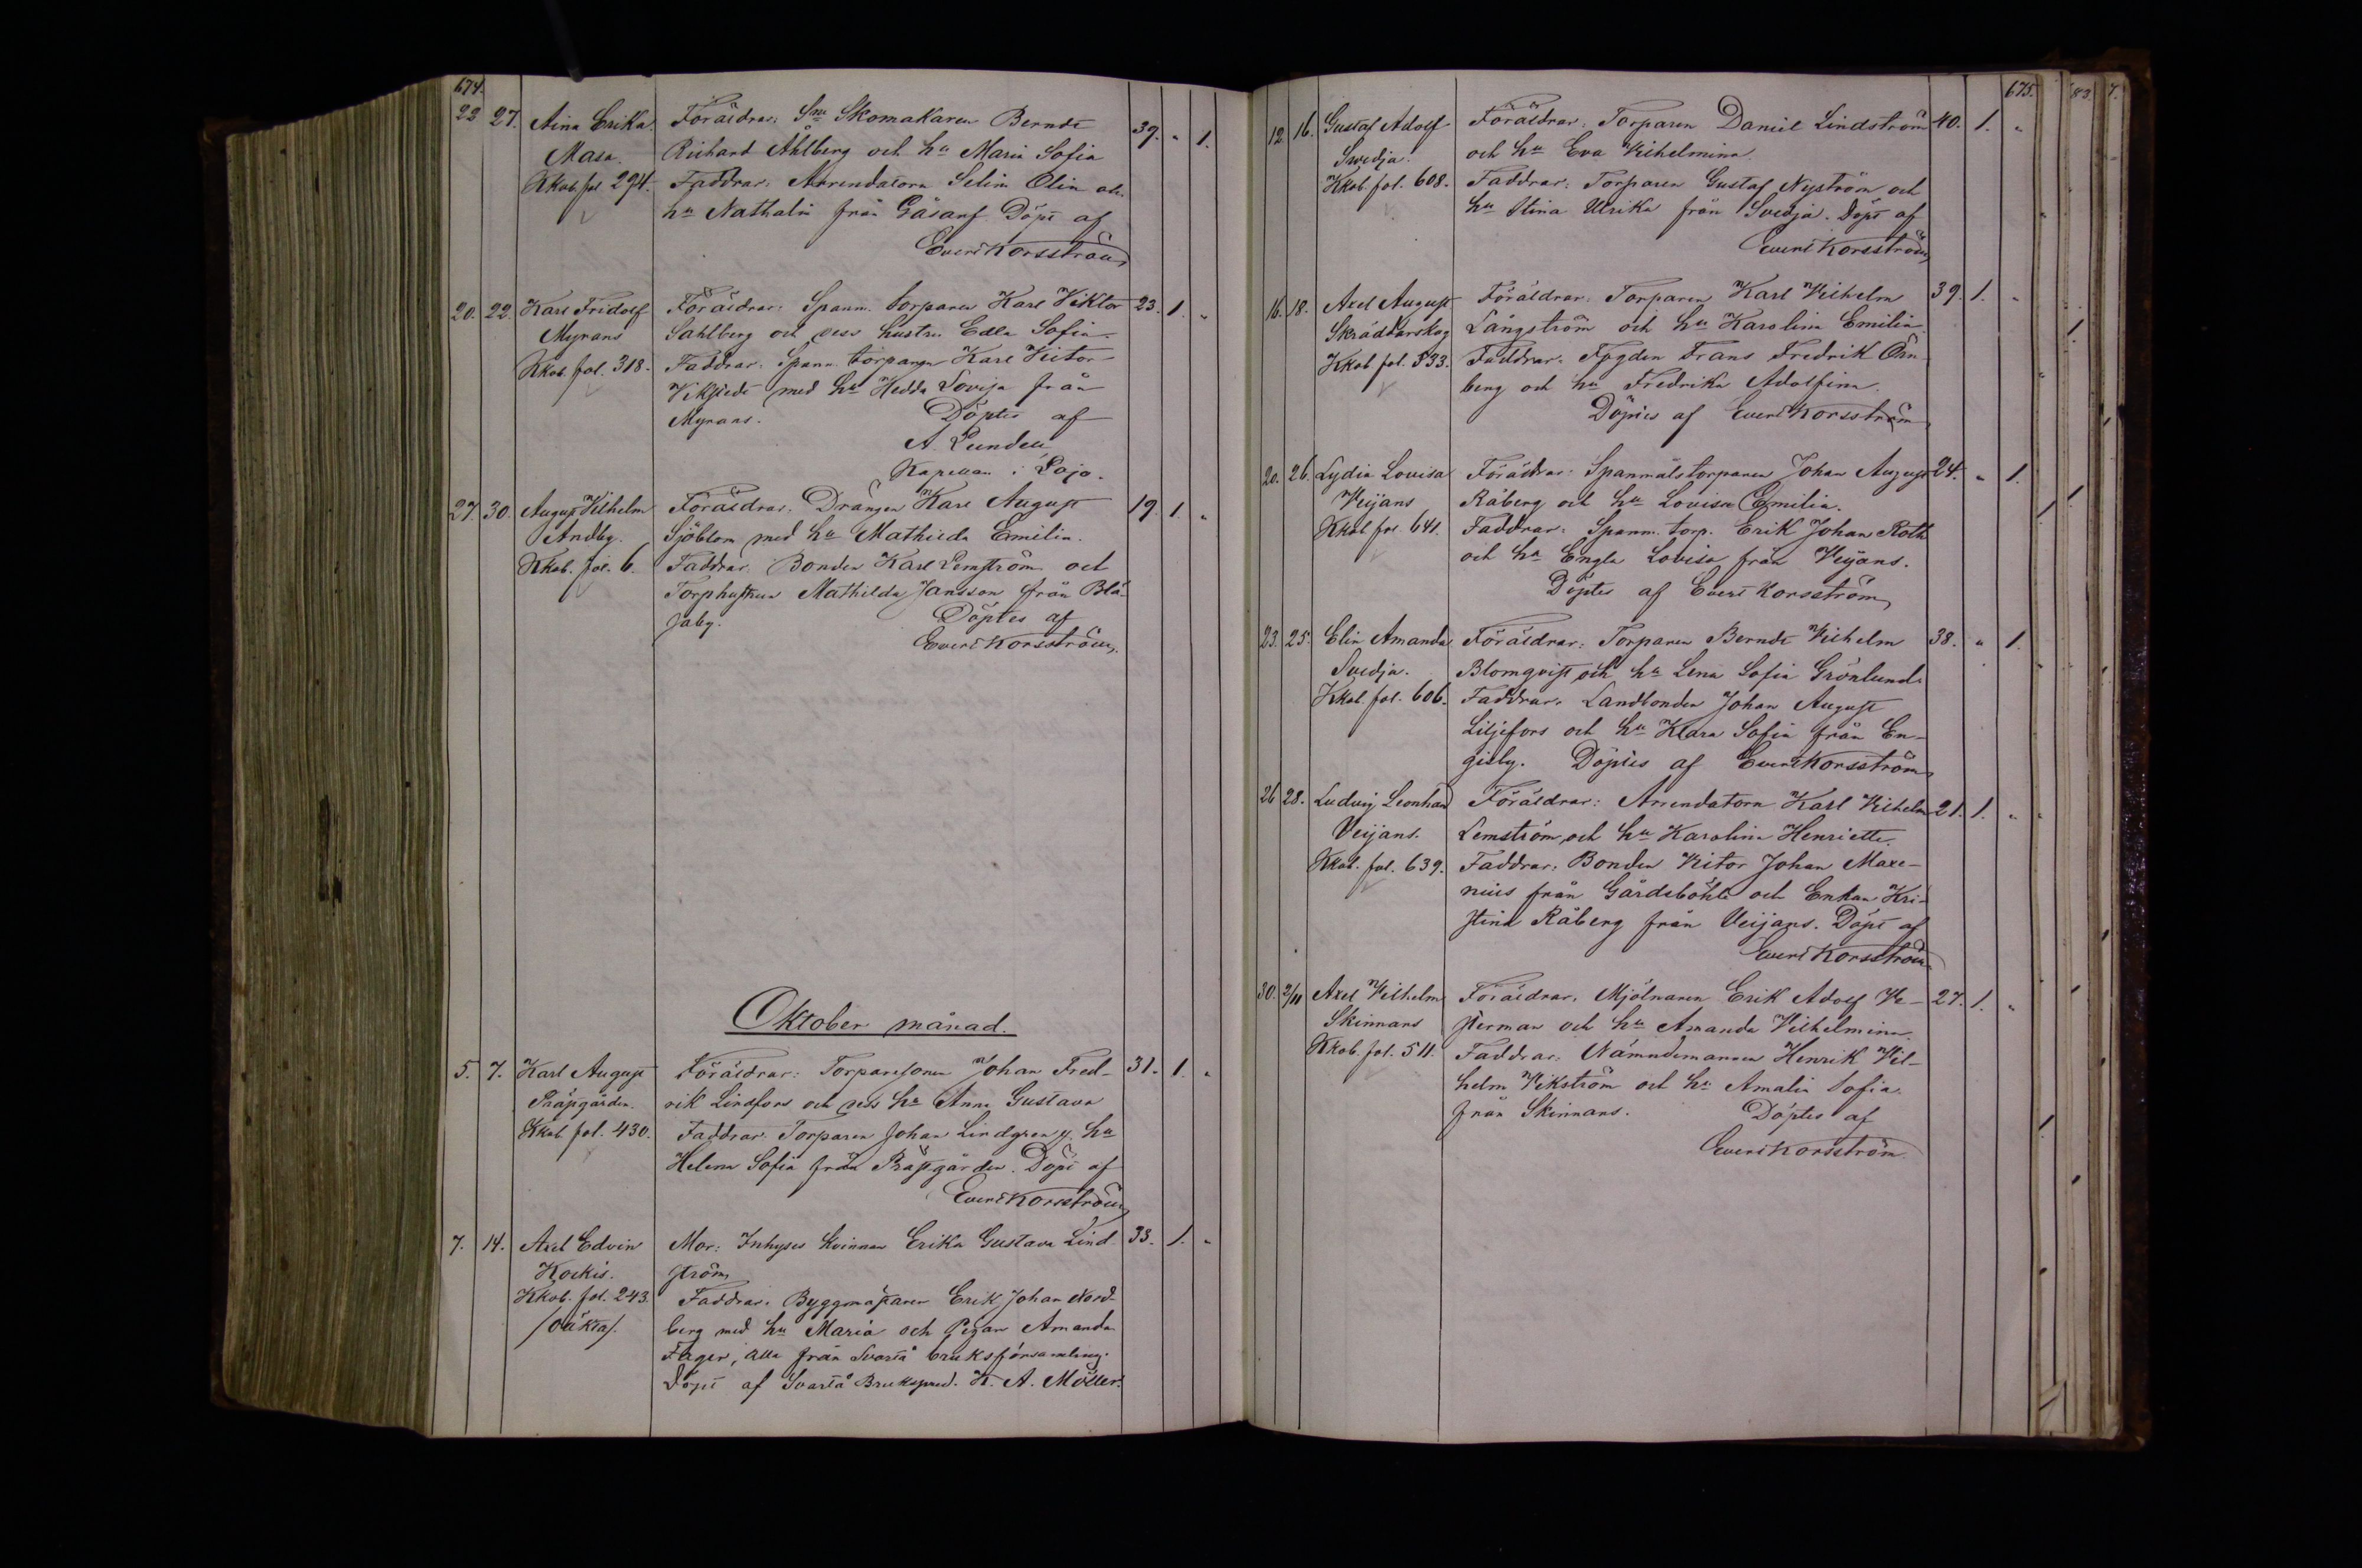 674.
22 27. Aina Erika. Föräldrar: Sme Skomakaren Berndt 39. " 1.
Masa. Richard Åhlberg och hu Maria Sofia
Kkob. fol 294. Faddrar: Arrendatorn Selim Olin och
hu Nathalia från Gåsarf Döpt af
Evert Korsström
20. 22. Karl Fridolf Föräldrar: Spanm. torparen Karl Viktor 23. 1. "
Myrans Sahlberg och dess hustru Edla Sofia.
Kkob. fol. 318. Faddrar: Spanm. torparen Karl Victor
Vikstedt med hu Hedda Lovisa från
Myrans. Döptes af
A. Lundell
Kapellan i Lojo.
27. 30. August Vilhelm Föräldrar: Drängen Karl August 19. 1. "
Andby. Sjöblom med hu Mathilda Emilia.
Kkob. fol. 6. Faddrar: Bonden Karl Lemström och
Torphustrun Mathilda Jansson från Blä-
jaby. Döptes af
Evert Korsström.
Oktober månad.
5. 7. Karl August Föräldrar: Torparesonen Johan Fred- 31. 1. "
Prästgården. rik Lindfors och dess hu Anna Gustava
Kkob. fol. 430. Faddrar: Torparen Johan Lindgren y. hu
Helena Sofia från Prästgården. Döpt af
Evert Korsström
7. 14. Axel Edvin Mor: Inhyses kvinnan Erika Gustava Lind- 33. 1. "
Koskis. ström
Kkob. fol. 243. Faddrar: Byggmästaren Erik Johan Nord-
/oäkta/. berg med hu Maria och Pigan Amanda
Fager, alla från Svartå bruksförsamling.
Döpt af Svartå Brukspred. K. A. Möller.
675.
12. 16. Gustaf Adolf Föräldrar: Torparen Daniel Lindström 40. 1. "
Svedja. och hu Eva Vilhelmina.
Kkob. fol. 608. Faddrar: Torparen Gustaf Nyström och
hu Stina Ulrika från Svedja. Döpt af
Evert Korsström
16. 18. Axel August Föräldrar: Torparen Karl Vilhelm 39. 1. "
Skräddarskog Långström och hu Karolina Emilia.
Kkob fol. 533. Faddrar: Fogden Frans Fredrik Örn-
berg och hu Fredrika Adolfina.
Döptes af Evert Korsström
20. 26. Lydia Lovisa Föräldrar: Spanmålstorparen Johan August 24. " 1.
Veijans Råberg och hu Lovisa Emilia.
Kkob fol. 641. Faddrar: Spanm. torp. Erik Johan Roth
och hu Engla Lovisa från Veijans.
Döptes af Evert Korsström
23. 25. Elin Amanda Föräldrar: Torparen Berndt Vilhelm 38. " 1.
Svedja. Blomqvist och hu Lena Sofia Grönlund.
Kkob. fol. 606. Faddrar: Landbonden Johan August
Liljefors och hu Klara Sofia från En-
gisby. Döptes af Evert Korsström
26 28. Ludvig Leonhard Föräldrar: Arrendatorn Karl Vilhelm 21. 1. "
Veijans. Lemström och hu Karolina Henriette.
Kkob. fol. 639. Faddrar: Bonden Victor Johan Maxe-
nius från Gårdsböhle och Enkan Kri-
stina Råberg från Veijans. Döpt af
Evert Korsström
30. 2/11 Axel Vilhelm Föräldrar: Mjölnaren Erik Adolf We- 27. 1. "
Skinnars sterman och hu Amanda Vilhelmina.
Kkob. fol. 511. Faddrar: Nämndemannen Henrik Vil-
helm Vikström och hu Amalia Sofia
från Skinnars. Döptes af
Evert Korsström.